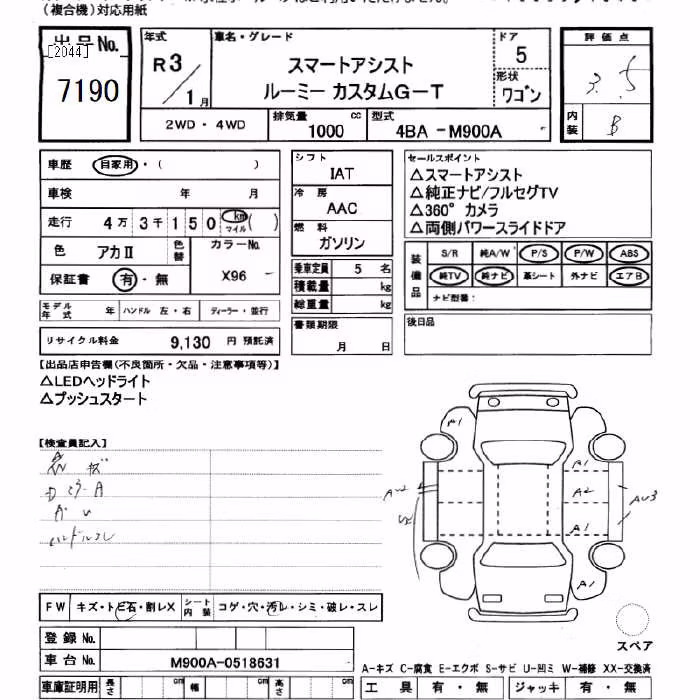 (複合機)対応用紙
出品No.
[2044]
7190
年式
R3/1月
車名・グレード
スマートアシスト
ルーミー カスタムG-T
ドア
5
形状
ワゴン
2WD・4WD
排気量
1000 cc
型式
4BA -M900A -
評価点
3.5
内装
B
車歴 自家用・( )
車検 年 月
走行 4万3千150 km マイル( )
色 アカⅡ
色替
カラーNo.
X96 -
保証書 有・無
モデル年式 年
ハンドル 左・右
ディーラー・並行
リサイクル料金 9,130 円 預託済
シフト
IAT
冷房
AAC
燃料
ガソリン
乗車定員 5 名
積載量 kg
総重量 kg
書類期限
月 日
セールスポイント
△スマートアシスト
△純正ナビ/フルセグTV
△360°カメラ
△両側パワースライドドア
装備品
S/R 純A/W P/S P/W ABS
純TV 純ナビ 革シート 外ナビ エアB
ナビ型番:
後日品
【出品店申告欄(不良箇所・欠品・注意事項等)】
△LEDヘッドライト
△プッシュスタート
【検査員記入】
ハンドルスレ
A1
A1
A2
A1
A1
AU3
FW キズ・トビ石・割レX
シート内装 コゲ・穴・汚レ・シミ・破レ・スレ
登録No.
車台No. M900A-0518631
車庫証明用 長さ cm 幅 cm 高さ cm
スペア
A-キズ C-腐食 E-エクボ S-サビ U-凹ミ W-補修 XX-交換済
工具 有・無 ジャッキ 有・無